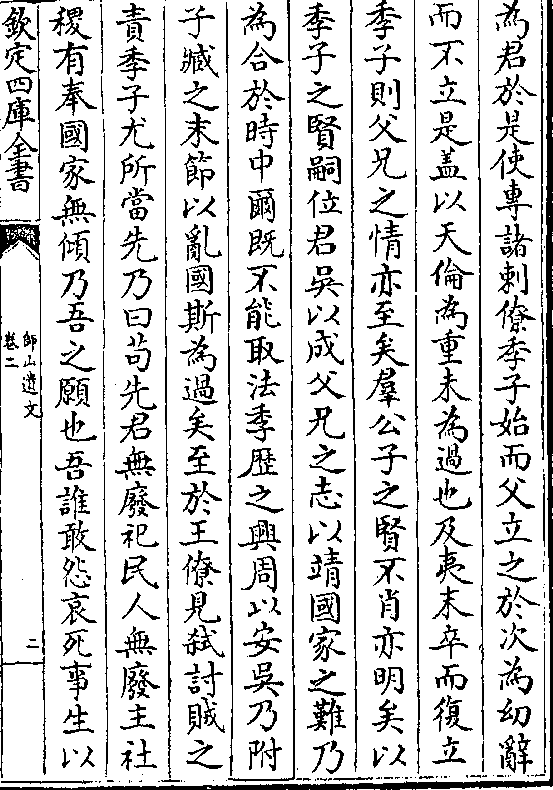 為君於是使專諸刺僚季子始而父立之於次為幼辭
而不立是盖以天倫為重未為過也及夷末卒而復立
季子則父兄之情亦至矣羣公子之賢不肖亦明矣以
季子之賢嗣位君吳以成父兄之志以靖國家之難乃
為合於時中爾既不能取法季歴之興周以安吳乃附
子臧之末節以亂國斯為過矣至於王僚見弑討賊之
責季子尤所當先乃曰茍先君無廢祀民人無廢主社
稷有奉國家無傾乃吾之願也吾誰敢怨哀死事生以
欽定四庫全書
師山遺文
卷二
二